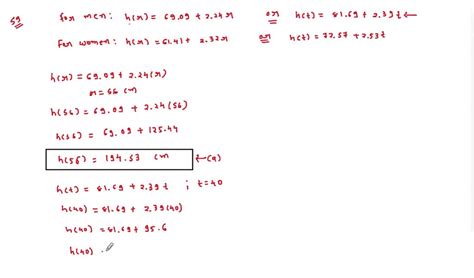 59 for men: h(r) = 69.09 + 2.24r or h(t) = 81.69 + 2.39t ←
For women: h(r) = 61.41 + 2.32r or h(t) = 72.57 + 2.53t
h(r) = 69.09 + 2.24(r)
r = 56 cm
h(56) = 69.09 + 2.24(56)
h(56) = 69.09 + 125.44
h(56) = 194.53 cm ←(a)
h(t) = 81.69 + 2.39t ; t=40
h(40) = 81.69 + 2.39(40)
h(40) = 81.69 + 95.6
h(40)